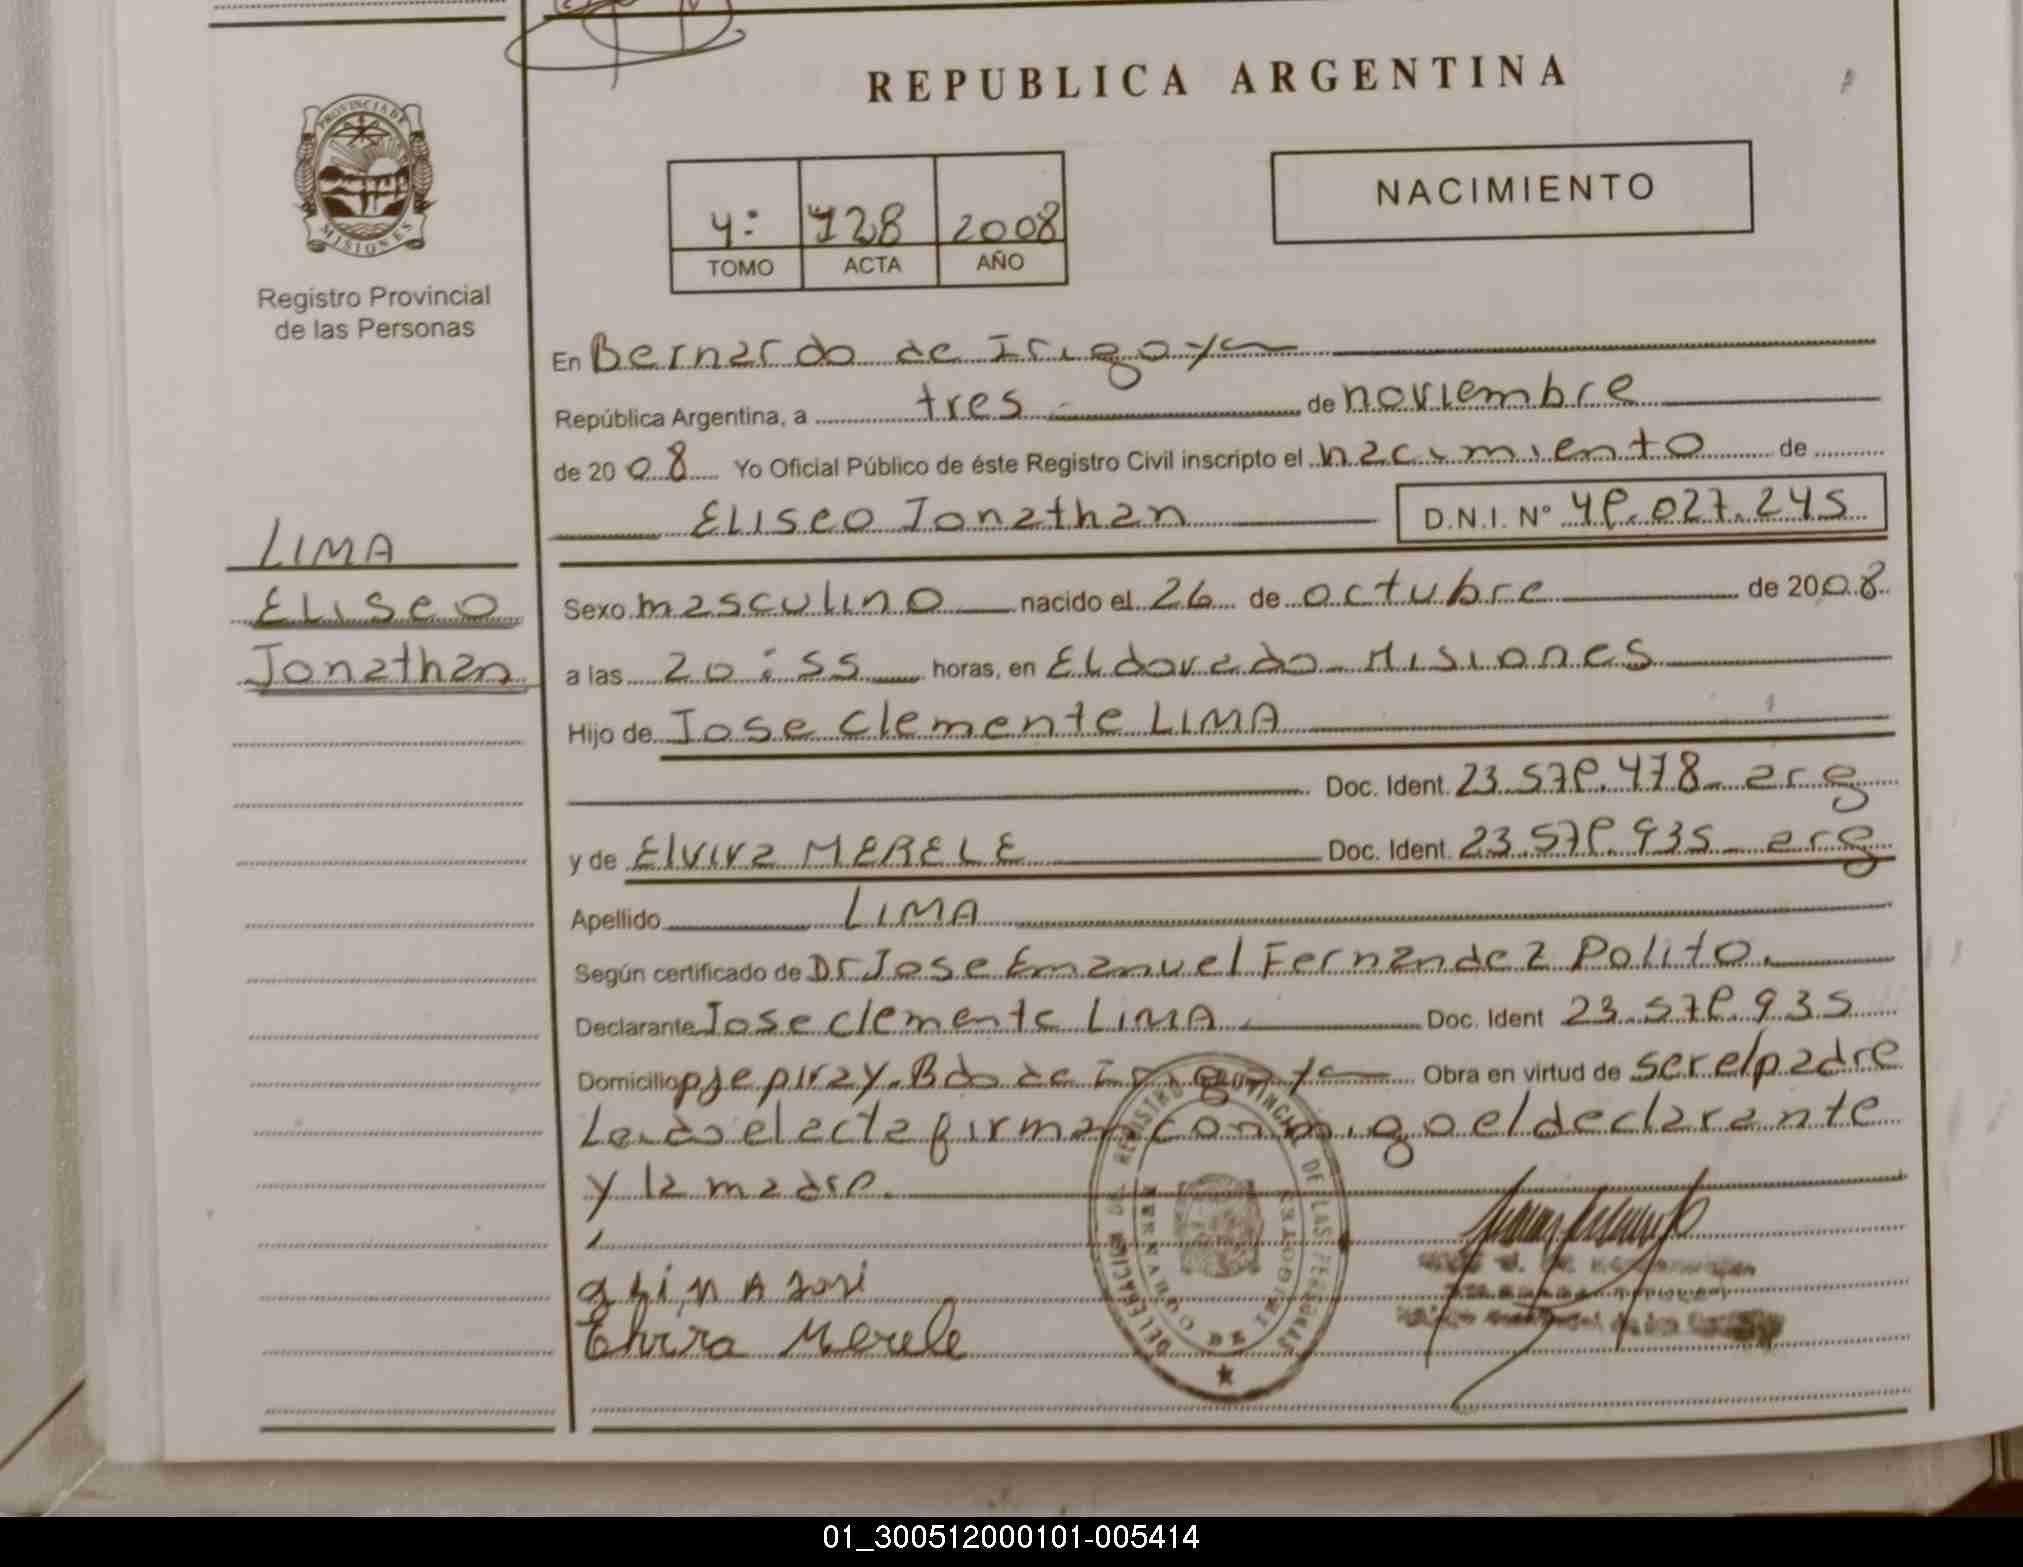 REPUBLICA ARGENTINA
PROVINCIA DE MISIONES
Registro Provincial
de las Personas
4: 728 2008
TOMO ACTA AÑO
NACIMIENTO
LIMA
ELISEO
Jonathan
En Bernardo de Irigoye
República Argentina, a tres de noviembre
de 2008 Yo Oficial Público de éste Registro Civil inscripto el nacimiento de
ELISEO Jonathan D.N.I. Nº 49.027.245
Sexo masculino nacido el 26 de octubre de 2008
a las 20:55 horas, en ELdorado Misiones
Hijo de Jose Clemente LIMA
Doc. Ident. 23.579.478 arg
y de Elvira MERELE Doc. Ident. 23.579.935 arg
Apellido LIMA
Según certificado de Dr Jose Emanuel Fernandez Polito.
Declarante Jose Clemente LIMA Doc. Ident 23.579.935
Domicilio pje piray. Bdo de Irigoye Obra en virtud de ser el padre
Leida el acta firman conmigo el declarante
y la madre.
LiMA José
Elvira Merele
DELEGACION DEL REGISTRO PROVINCIAL DE LAS PERSONAS
BERNARDO DE IRIGOYEN
01_300512000101-005414